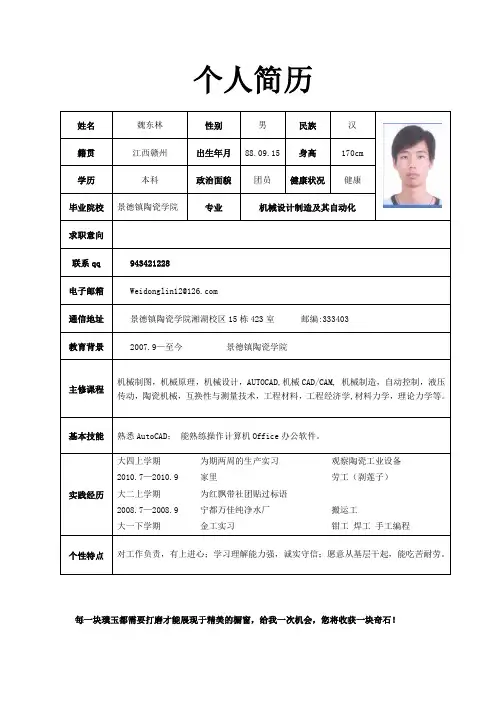 个人简历
姓名 魏东林 性别 男 民族 汉
籍贯 江西赣州 出生年月 88.09.15 身高 170cm
学历 本科 政治面貌 团员 健康状况 健康
毕业院校 景德镇陶瓷学院 专业 机械设计制造及其自动化
求职意向
联系qq 943421228
电子邮箱 Weidonglin12@126.com
通信地址 景德镇陶瓷学院湘湖校区15栋423室 邮编:333403
教育背景 2007.9—至今 景德镇陶瓷学院
主修课程 机械制图，机械原理，机械设计，AUTOCAD,机械CAD/CAM, 机械制造，自动控制，液压
传动，陶瓷机械，互换性与测量技术，工程材料，工程经济学,材料力学，理论力学等。
基本技能 熟悉AutoCAD； 能熟练操作计算机Office办公软件。
实践经历
大四上学期 为期两周的生产实习 观察陶瓷工业设备
2010.7—2010.9 家里 劳工（剥莲子）
大二上学期 为红飘带社团贴过标语
2008.7—2008.9 宁都万佳纯净水厂 搬运工
大一下学期 金工实习 钳工 焊工 手工编程
个性特点 对工作负责，有上进心；学习理解能力强，诚实守信；愿意从基层干起，能吃苦耐劳。
每一块璞玉都需要打磨才能展现于精美的橱窗，给我一次机会，您将收获一块奇石！